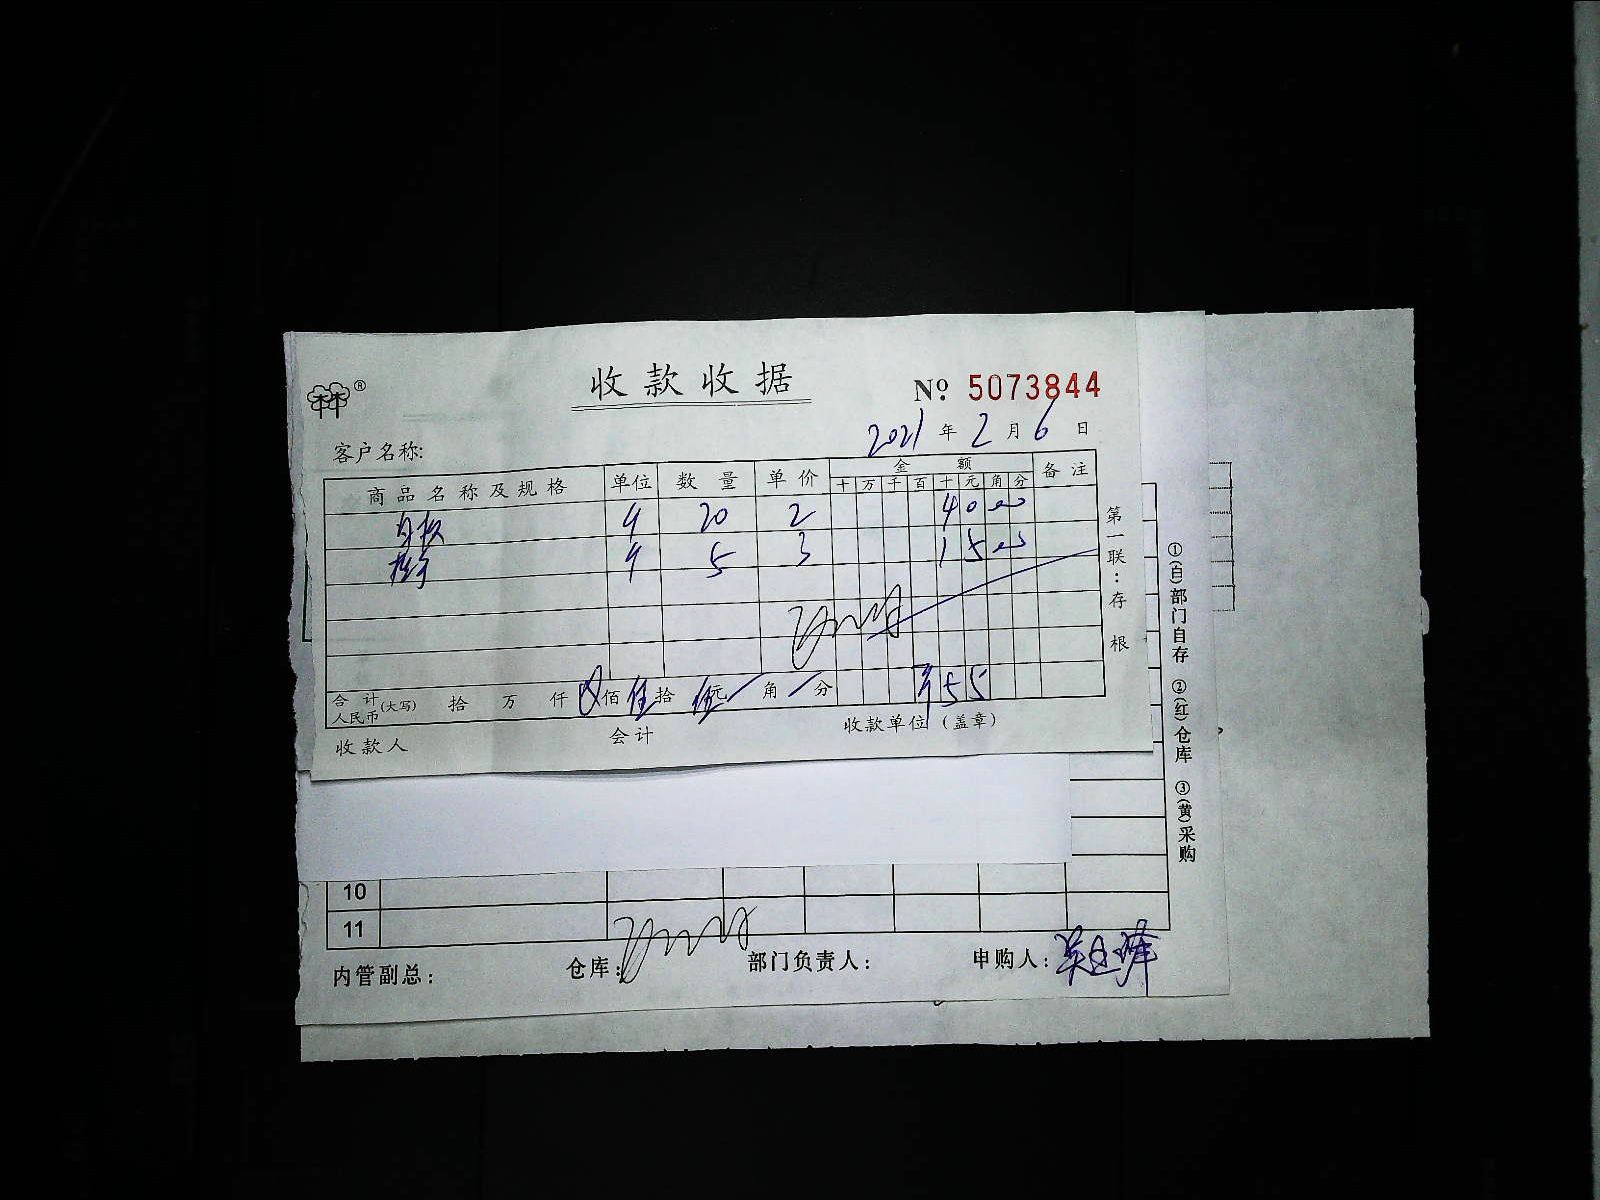 收款收据
Nº 5073844
2021年2月6日
客户名称:
商品名称及规格 单位 数量 单价 金额 备注
十 万 千 百 十 元 角 分
20 2 40 00
5 3 15 00
合计人民币(大写) 拾 万 仟 佰 伍拾 伍元 角 分 ¥55
收款人 会计 收款单位(盖章)
第一联:存根
①(白)部门自存 ②(红)仓库 ③(黄)采购
10
11
内管副总: 仓库: 部门负责人: 申购人: